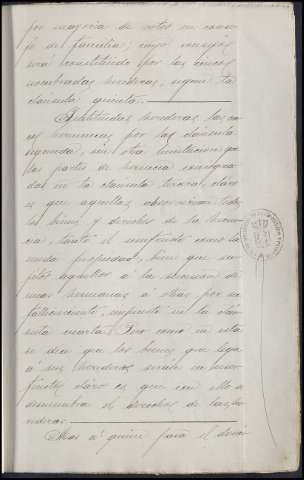 por mayoria de votos en conse-
jo de familia; cuyo consejo
será constituido por las cinco
nombradas herederas, segun la
cláusula quinta.
Instituidas herederas las cin-
co hermanas por las cláusula
segunda, sin otra limitacion que
las partes de herencia consigna-
das en la cláusula tercera, claro
es que aquellas
los bienes y derechos de la heren-
cia, tanto el usufructo como la
nuda propiedad, bien que su-
jetos aquellos á la sucesion de
unas hermanas á otras por su
fallecimiento, impuesto en la cláu-
sula cuarta. Pero como en esta
se dice que los bienes que lega
á sus herederas serán en usu-
fructo, claro es que con ello
el derecho de las he-
rederas.
Mas á quien pasa el